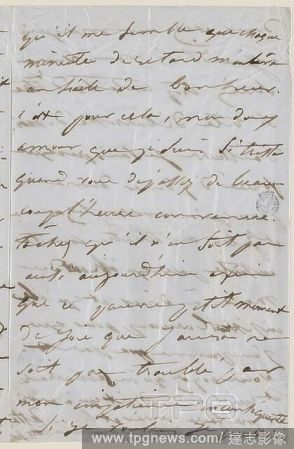 qu'il me semble que chaque
minute de retard m'ôte
un siècle de bonheur.
c'est pour cela, mon doux
amour, que je suis si triste
quand vous dépassez de beau
coup l'heure convenue.
tâchez qu'il n'en soit pas
ainsi aujourd'hui afin
que ce pauvre petit moment
de joie que j'aurai ne
soit pas troublé par
mon
si je
TPG
www.tpgnews.com 達志影像